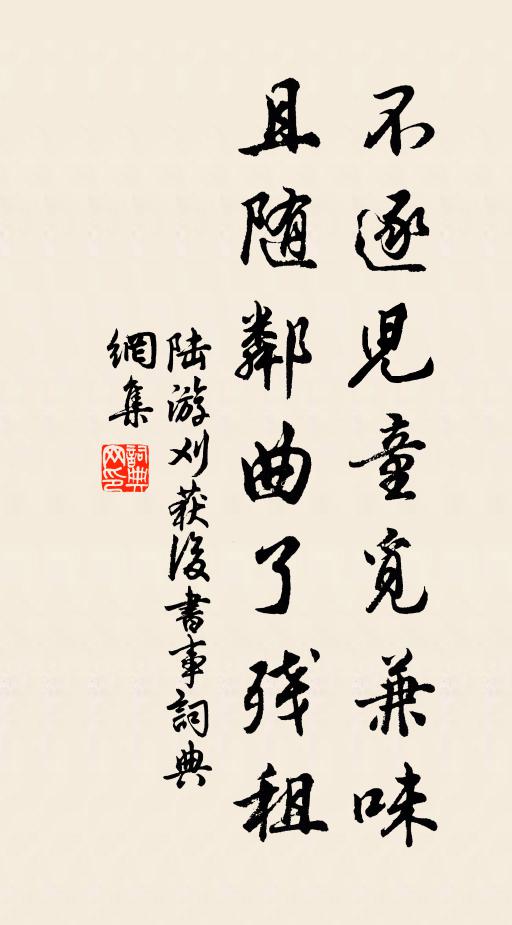 不逐児童覓兼味
且随鄰曲了残租
陆游刈获後書事詞典
網集
詞典
网印